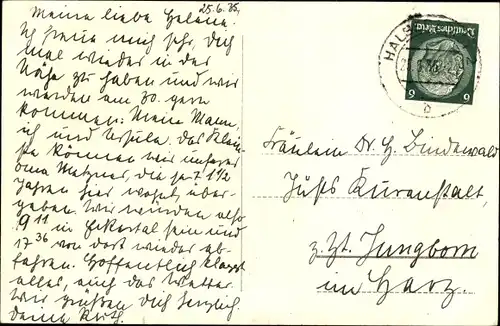 25.6.35.
Meine liebe Helene.
Ich freue mich sehr, Dich
mal wieder in der
Nähe zu haben und wir
werden am 30. gern
kommen: Mein Mann,
ich und Ursula. Das Klein-
ste können wir unserer
Oma Metzner, die jetzt 1½
Jahren hier wohnt, über-
geben. Wir würden also
9 11 in Eckertal sein und
17 36 von dort wieder ab-
fahren. Hoffentlich klappt
alles, auch das Wetter.
Wir grüßen Dich herzlich
deine Ruth.
HAL
b
Deutsches Reich
6 6
Fräulein Dr. H. Bindewald
Justs Kuranstalt,
z. Zt. Jungborn
im Harz.